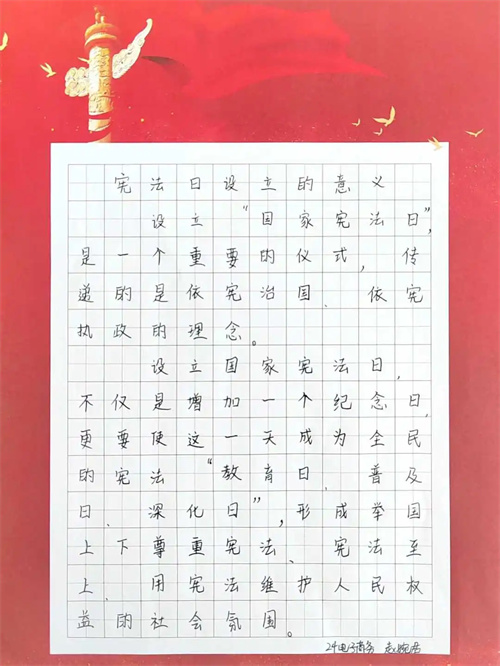 宪法日设立的意义
设立“国家宪法日”,
是一个重要的仪式,传
递的是依宪治国、依宪
执政的理念。
设立国家宪法日,
不仅是增加一个纪念日,
更要使这一天成为全民
的宪法“教育日、普及
日、深化日”,形成举国
上下尊重宪法、宪法至
上、用宪法维护人民权
益的社会氛围。
24电子商务 赵婉君